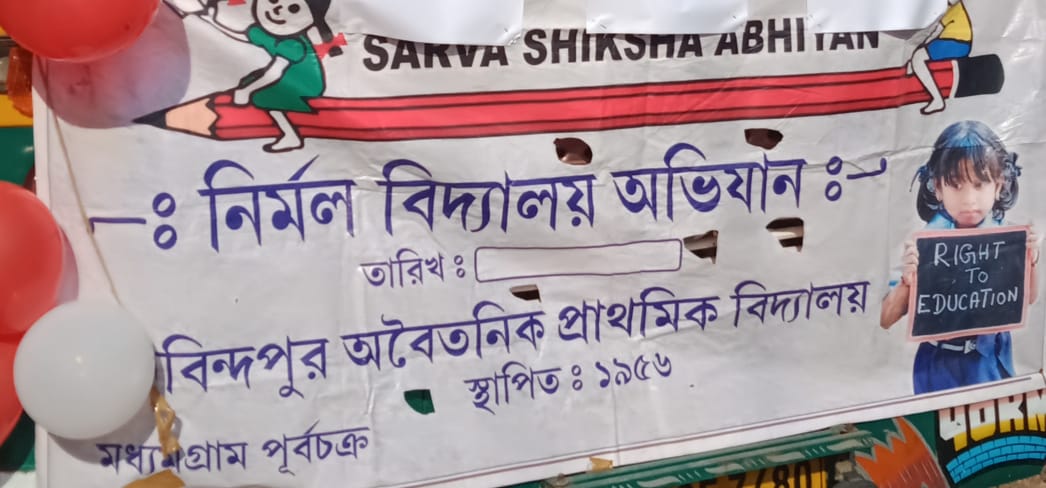 SARVA SHIKSHA ABHIYAN
-ঃ নির্মল বিদ্যালয় অভিযান ঃ-
তারিখ ঃ
বিন্দপুর অবৈতনিক প্রাথমিক বিদ্যালয়
স্থাপিত ঃ ১৯৫৬
মধ্যমগ্রাম পূর্বচক্র
RIGHT
TO
EDUCATION